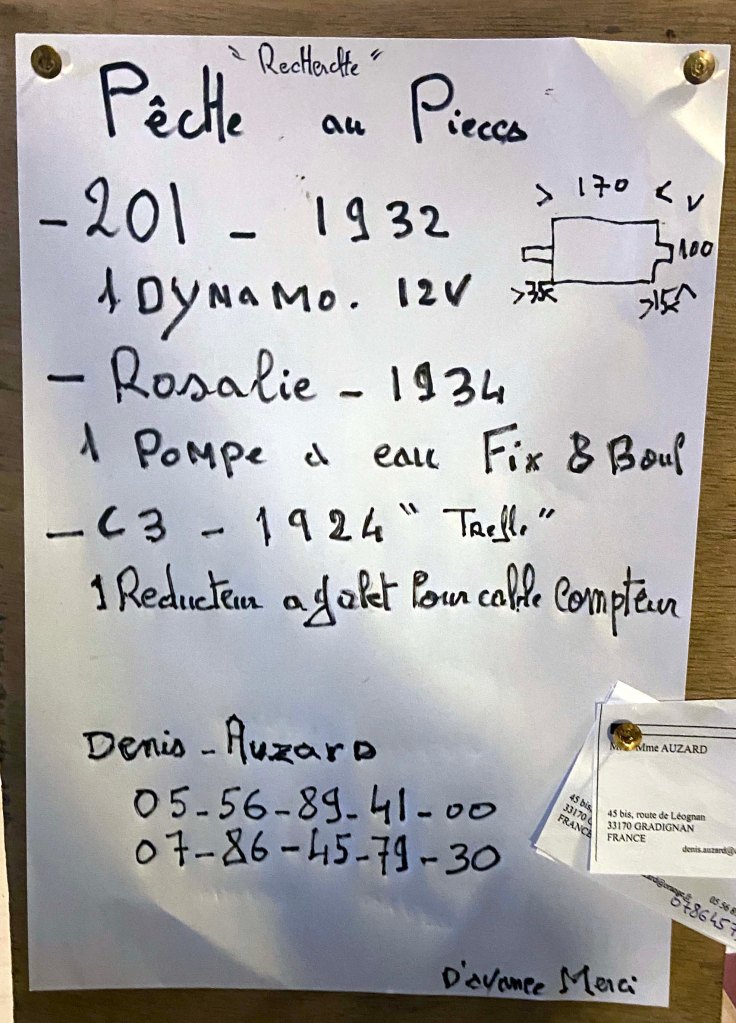 "Recherche"
Pêche au Pieces
- 201 - 1932
> 170 < v
100
>35<
>15< ^
1 DYNAMO. 12V
- Rosalie - 1934
1 POMPE a eau Fix 8 Boul
- C3 - 1924 "Trefle"
1 Reducteur a galet Pour cable Compteur
Denis - Auzard
05-56-89-41-00
07-86-45-79-30
D'avance Merci
Mme AUZARD
45 bis, route de Léognan
33170 GRADIGNAN
FRANCE
denis.auzard@
45 bis,
33170 G
FRANCE
05 56 8
0786457